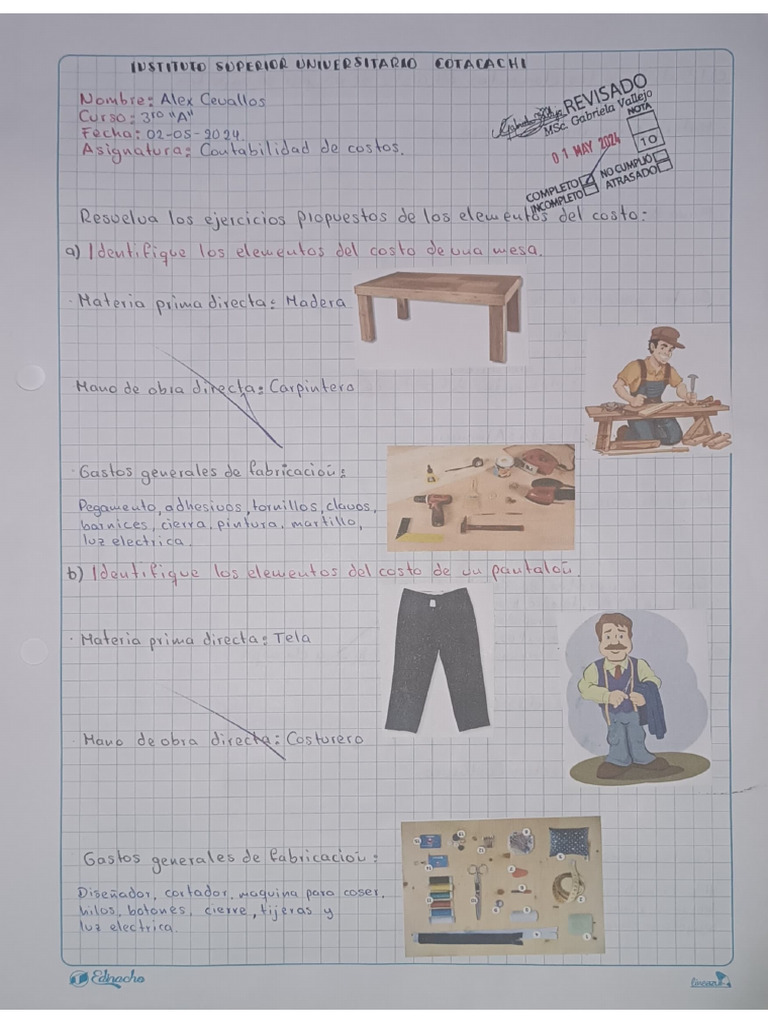 INSTITUTO SUPERIOR UNIVERSITARIO COTACACHI
Nombre: Alex Cevallos
Curso: 3ro "A"
Fecha: 02-05-2024
Asignatura: Contabilidad de costos.
REVISADO
MSc. Gabriela Vallejo
01 MAY 2024
NOTA
10
COMPLETO
INCOMPLETO
NO CUMPLIÓ
ATRASADO
Resuelva los ejercicios propuestos de los elementos del costo:
a) Identifique los elementos del costo de una mesa.
· Materia prima directa: Madera
Mano de obra directa: Carpintero
· Gastos generales de fabricación:
Pegamento, adhesivos, tornillos, clavos,
barnices, cierra, pintura, martillo,
luz electrica.
b) Identifique los elementos del costo de un pantalón.
· Materia prima directa: Tela
· Mano de obra directa: Costurero
Gastos generales de fabricación:
Diseñador, cortador, maquina para coser,
hilos, botones, cierre, tijeras y
luz electrica.
Edinacho